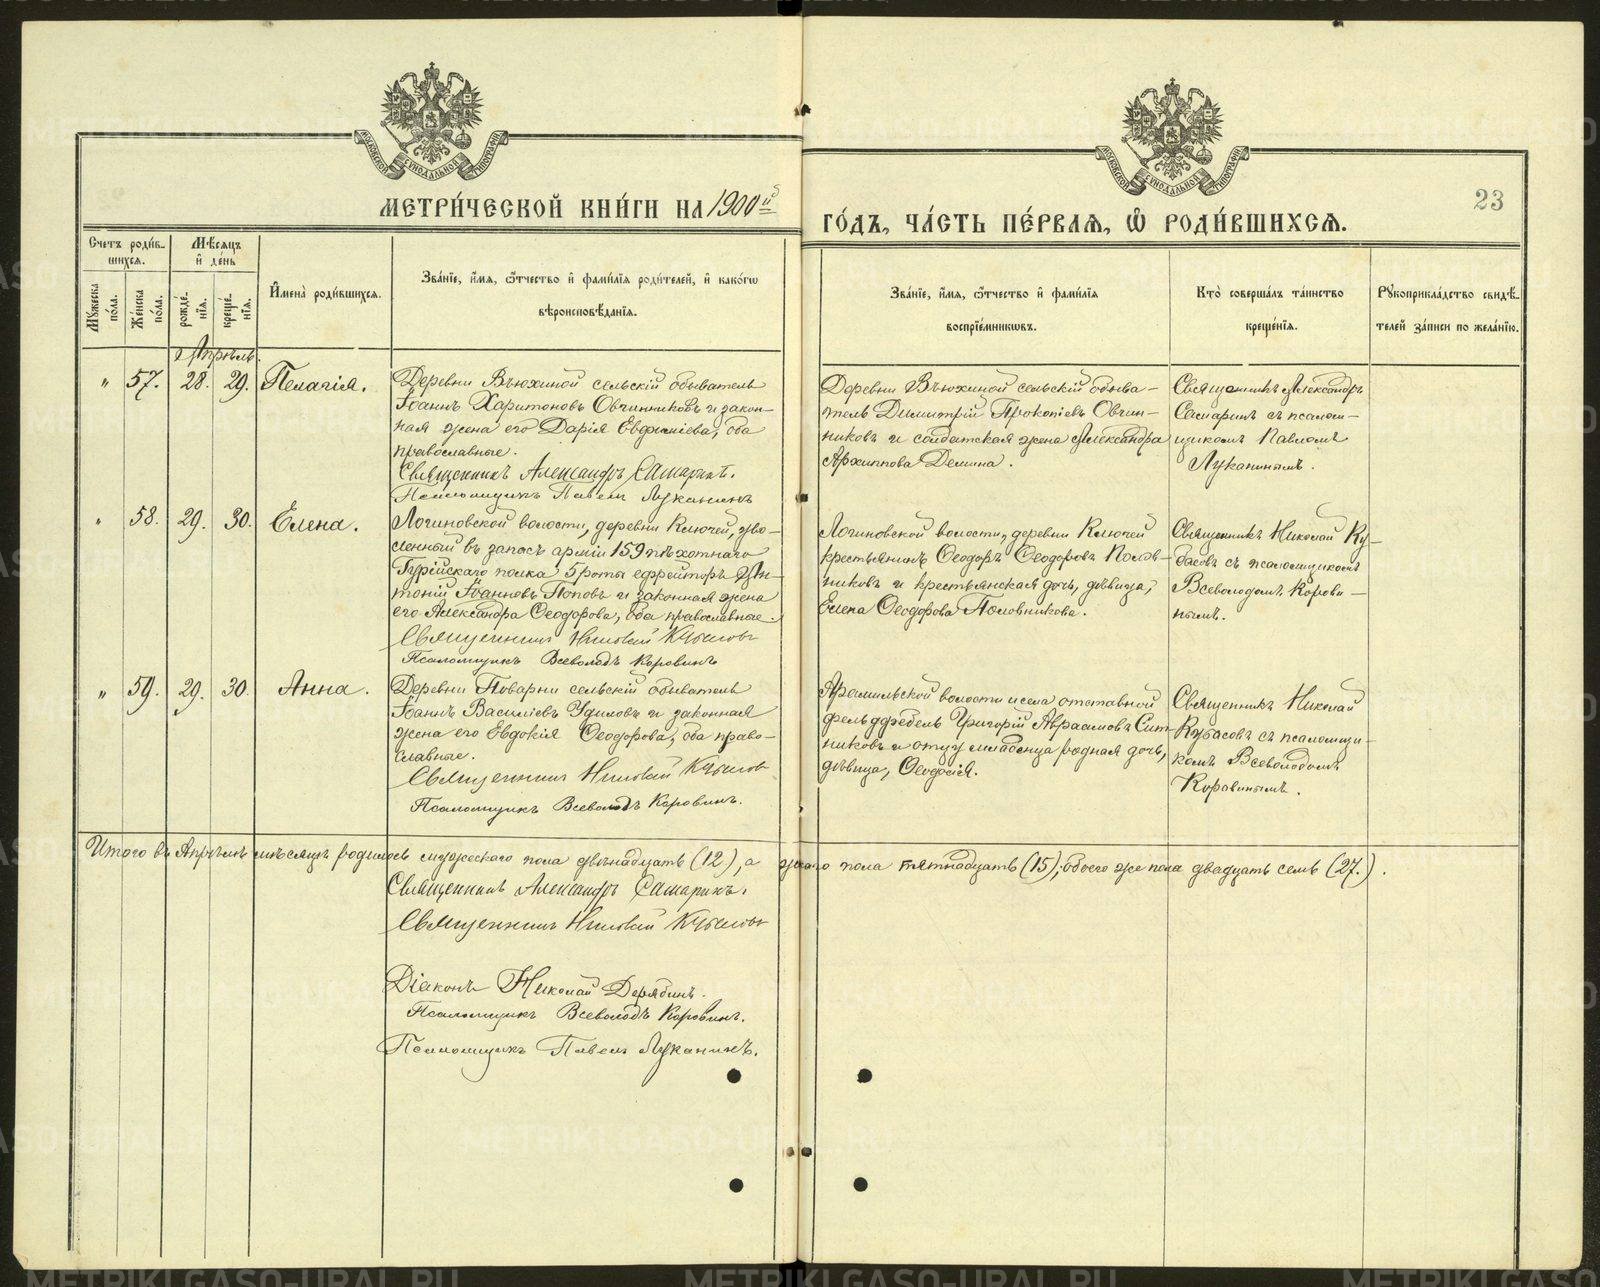 МЕТРИ́ЧЕСКОЙ КНИ́ГИ НА 1900й
ГО́ДЪ, ЧА́СТЬ ПЕ́РВАЯ, Ѡ҆ РОДИ́ВШИХСЯ.
23
МОСКОВСКОЙ СѴНОДАЛЬНОЙ ТИПОГРАФІИ
МОСКОВСКОЙ СѴНОДАЛЬНОЙ ТИПОГРАФІИ
Счетъ роди́в-
шихся.
Мꙋ́жеска по́ла.
Же́нска по́ла.
Мѣ́сяцъ
и҆ де́нь
рожде́-нїя.
креще́-нїя.
И҆мена̀ роди́вшихся.
Зва́нїе, и҆́мя, ѻ҆́тчество и҆ фами́лїя роди́телей, и҆ како́гѡ
вѣроисповѣ́данїя.
Зва́нїе, и҆́мя, ѻ҆́тчество и҆ фами́лїя
воспрїе́мникѡвъ.
Кто̀ соверша́лъ та́инство
креще́нїя.
Рꙋкоприкла́дство свидѣ́-
телей за́писи по жела́нїю.
Апрѣль.
" 57. 28. 29. Пелагія.
Деревни Вьюхиной сельскій обыватель
Іоаннъ Харитоновъ Овчинниковъ и закон-
ная жена его Дарія Евфиміева, оба
православные.
Священникъ Александръ Самаринъ.
Псаломщикъ Павелъ Луканинъ
Деревни Вьюхиной сельскій обыва-
тель Димитрій Прокопіевъ Овчин-
никовъ и солдатская жена Александра
Архиппова Демина.
Священникъ Александръ
Самаринъ съ псалом-
щикомъ Павломъ
Луканинымъ.
" 58. 29. 30. Елена.
Логиновской волости, деревни Ключей, уво-
ленный въ запасъ арміи 159 пѣхотнаго
Гурійскаго полка 5 роты ефрейторъ Ан-
тоній Іоанновъ Поповъ и законная жена
его Александра Ѳеодорова, оба православные.
Священникъ Николай Кубасовъ
Псаломщикъ Всеволодъ Коровинъ
Логиновской волости, деревни Ключей
крестьянинъ Ѳеодоръ Ѳеодоровъ Полов-
никовъ и крестьянская дочь, дѣвица,
Елена Ѳеодорова Половникова.
Священникъ Николай Ку-
басовъ съ псаломщикомъ
Всеволодомъ Корови-
нымъ.
" 59. 29. 30. Анна.
Деревни Поварни сельскій обыватель
Іоаннъ Василіевъ Удиловъ и законная
жена его Евдокія Ѳеодорова, оба право-
славные.
Священникъ Николай Кубасовъ
Псаломщикъ Всеволодъ Коровинъ.
Арамильской волости и села отставной
фельдфебель Григорій Авраамовъ Сит-
никовъ и отцу младенца родная дочь,
дѣвица, Ѳеодосія.
Священникъ Николай
Кубасовъ съ псаломщи-
комъ Всеволодомъ
Коровинымъ.
Итого въ Апрѣлѣ мѣсяцѣ родилось мужескаго пола двѣнадцать (12), а жескаго пола пятнадцать (15); обоего же пола двадцать семь (27.).
Священникъ Александръ Самаринъ.
Священникъ Николай Кубасовъ
Діаконъ Николай Дерябинъ.
Псаломщикъ Всеволодъ Коровинъ.
Псаломщикъ Павелъ Луканинъ.
METRIKI.GASO-URAL.RU